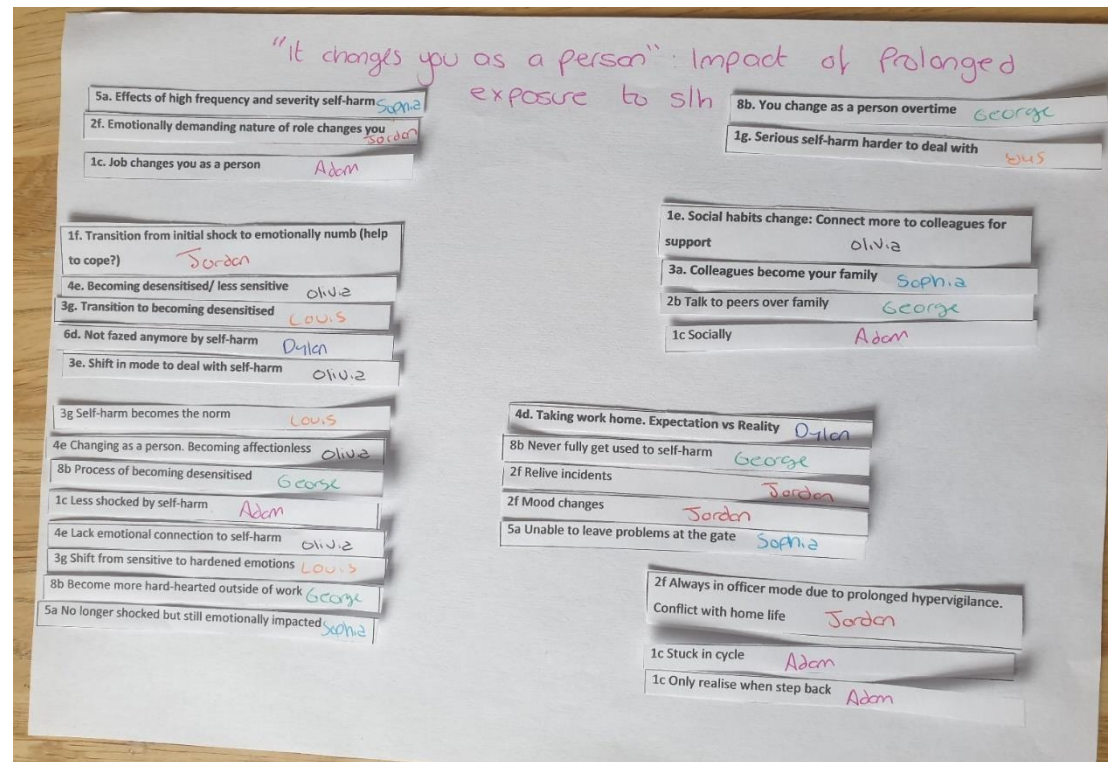 "It changes you as a person": Impact of Prolonged
exposure to s/h
5a. Effects of high frequency and severity self-harm Sophia
2f. Emotionally demanding nature of role changes you Jordan
1c. Job changes you as a person Adam
8b. You change as a person overtime George
1g. Serious self-harm harder to deal with
1f. Transition from initial shock to emotionally numb (help
to cope?) Jordan
4e. Becoming desensitised/ less sensitive Olivia
3g. Transition to becoming desensitised Louis
6d. Not fazed anymore by self-harm Dylan
3e. Shift in mode to deal with self-harm Olivia
3g Self-harm becomes the norm Louis
4e Changing as a person. Becoming affectionless Olivia
8b Process of becoming desensitised George
1c Less shocked by self-harm Adam
4e Lack emotional connection to self-harm Olivia
3g Shift from sensitive to hardened emotions Louis
8b Become more hard-hearted outside of work George
5a No longer shocked but still emotionally impacted Sophia
1e. Social habits change: Connect more to colleagues for
support Olivia
3a. Colleagues become your family Sophia
2b Talk to peers over family George
1c Socially Adam
4d. Taking work home. Expectation vs Reality Dylan
8b Never fully get used to self-harm George
2f Relive incidents Jordan
2f Mood changes Jordan
5a Unable to leave problems at the gate Sophia
2f Always in officer mode due to prolonged hypervigilance.
Conflict with home life Jordan
1c Stuck in cycle Adam
1c Only realise when step back Adam